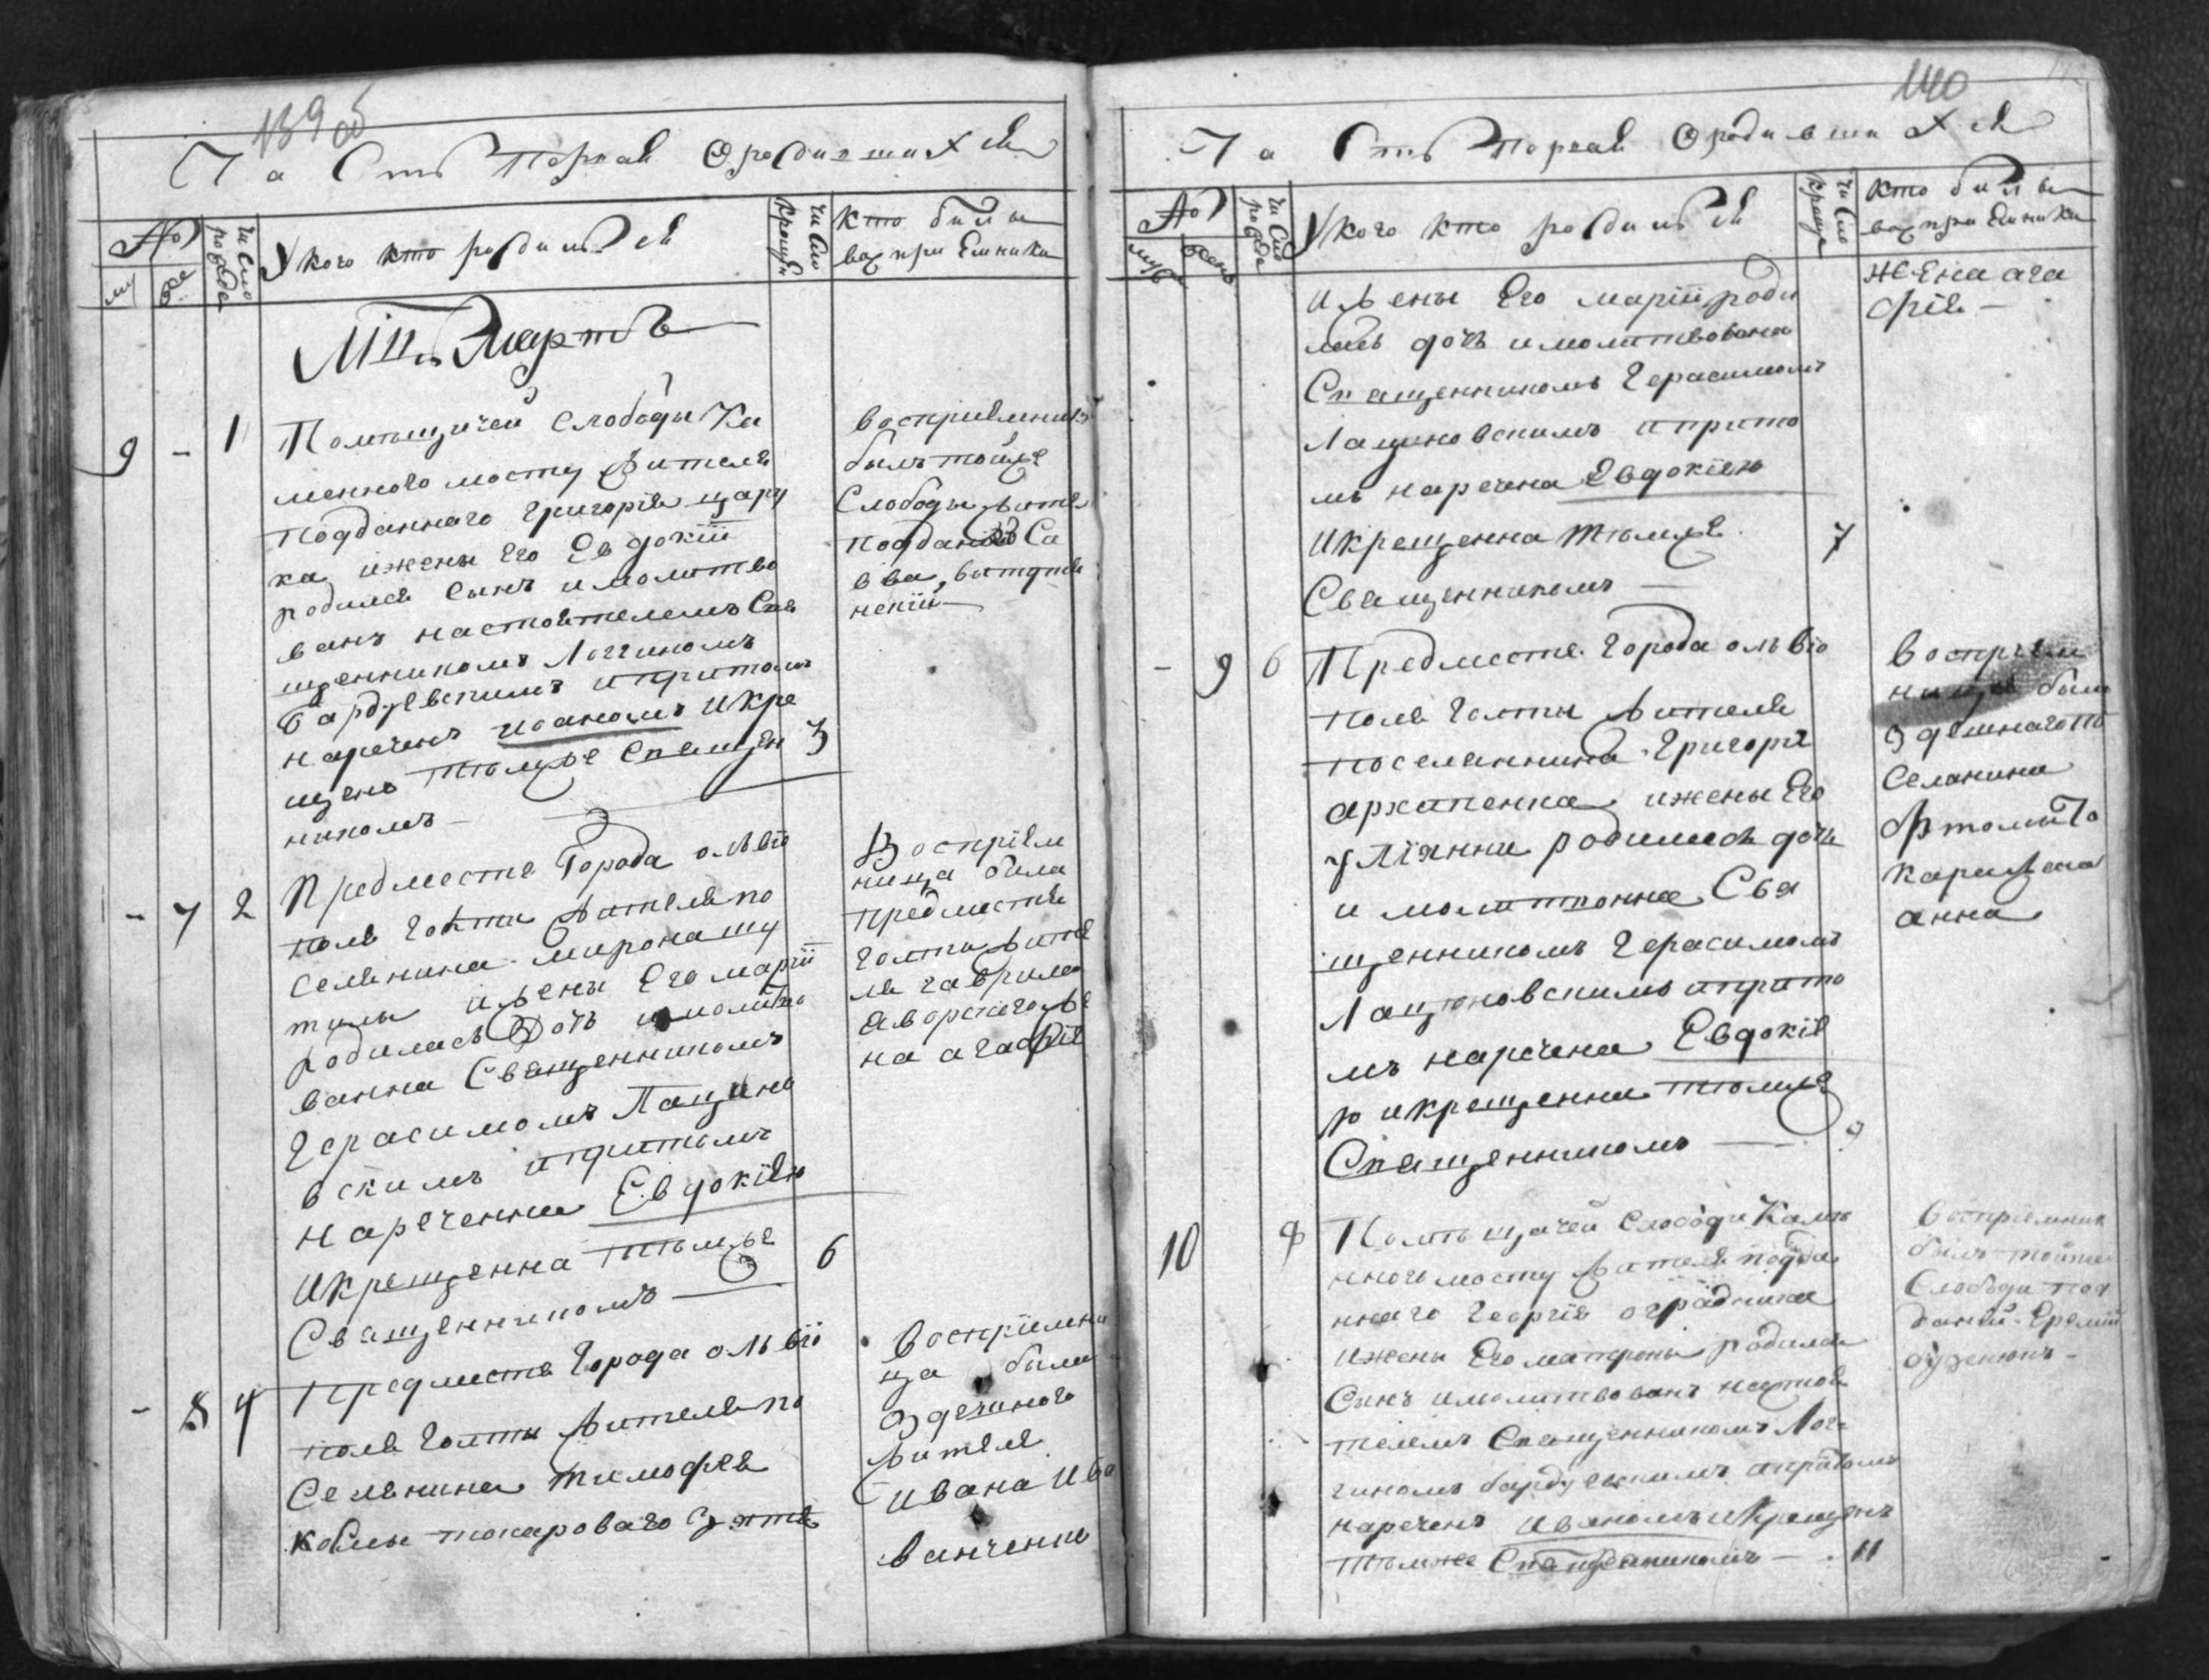 139 об
Часть первая о родившихся
№
му
же
число рожде
У кого кто родился
число креще
кто были
восприемники
Мць Мартъ
9 - 1
Помѣщичей слободы Ка
менного мосту жителя
подданнаго Григорія цару
ка и жены его Евдокіи
родился сынъ и молитво
ванъ настоятелемъ Свя
щенникомъ Логгиномъ
бардуевскимъ и притомъ
нареченъ иоаномъ и кре
щенъ тѣмже Священ
никомъ
3
восприемникъ
былъ тойже
Слободы жите
подданий Са
ва
нский
- 7 2
Предместя Города ольвіо
поля Голти жителя по
селянина мирона шу
тилы и жены Его маріи
родилась дочъ и молитво
ванна Священникомъ
Герасимомъ Лащино
вскимъ и притомъ
нареченна Евдокіею
и крещенна тѣмже
Священникомъ
6
Восприем
ница била
предместя
голти жите
ля гаврила
яворского же
на агафія
- 8 4
Предместя Города ольвіо
поля Голти жителя по
селянина тимофея
кобзы токароваго зятя
восприемни
ца била
здешного
жителя
ивана ива
ванченко
140
Часть первая о родившихся
№
муж
женс
число рожде
У кого кто родился
число креще
кто били
восприемники
и жены Его маріи роди
лась дочъ и молитвована
Священникомъ Герасимомъ
Лащиновскимъ и прито
мъ наречена Евдокіею
и крещенна тѣмже
Священникомъ
7
жена ага
фія
- 9 6
Предместя Города ольвіо
поля Голти жителя
поселянина Григоря
архипенка и жены Его
уліянни родилась дочъ
и молитвонна Свя
щенникомъ Герасимомъ
Лащиновскимъ и прито
мъ наречена Евдокіе
ю и крещенна тѣмже
Священникомъ
9
восприем
ница била
здешнаго по
селянина
жена
анна
10 8
Помѣщичей слободи Каме
нного мосту жителя подда
ннаго Георгія оградника
и жены Его матроны родился
Синъ и молитвованъ настоя
телемъ Священникомъ Лог
гиномъ бардуевскимъ и притомъ
нареченъ иваномъ и крещенъ
тѣмже Священникомъ
11
восприемник
былъ тойже
Слободи под
даний Еремий